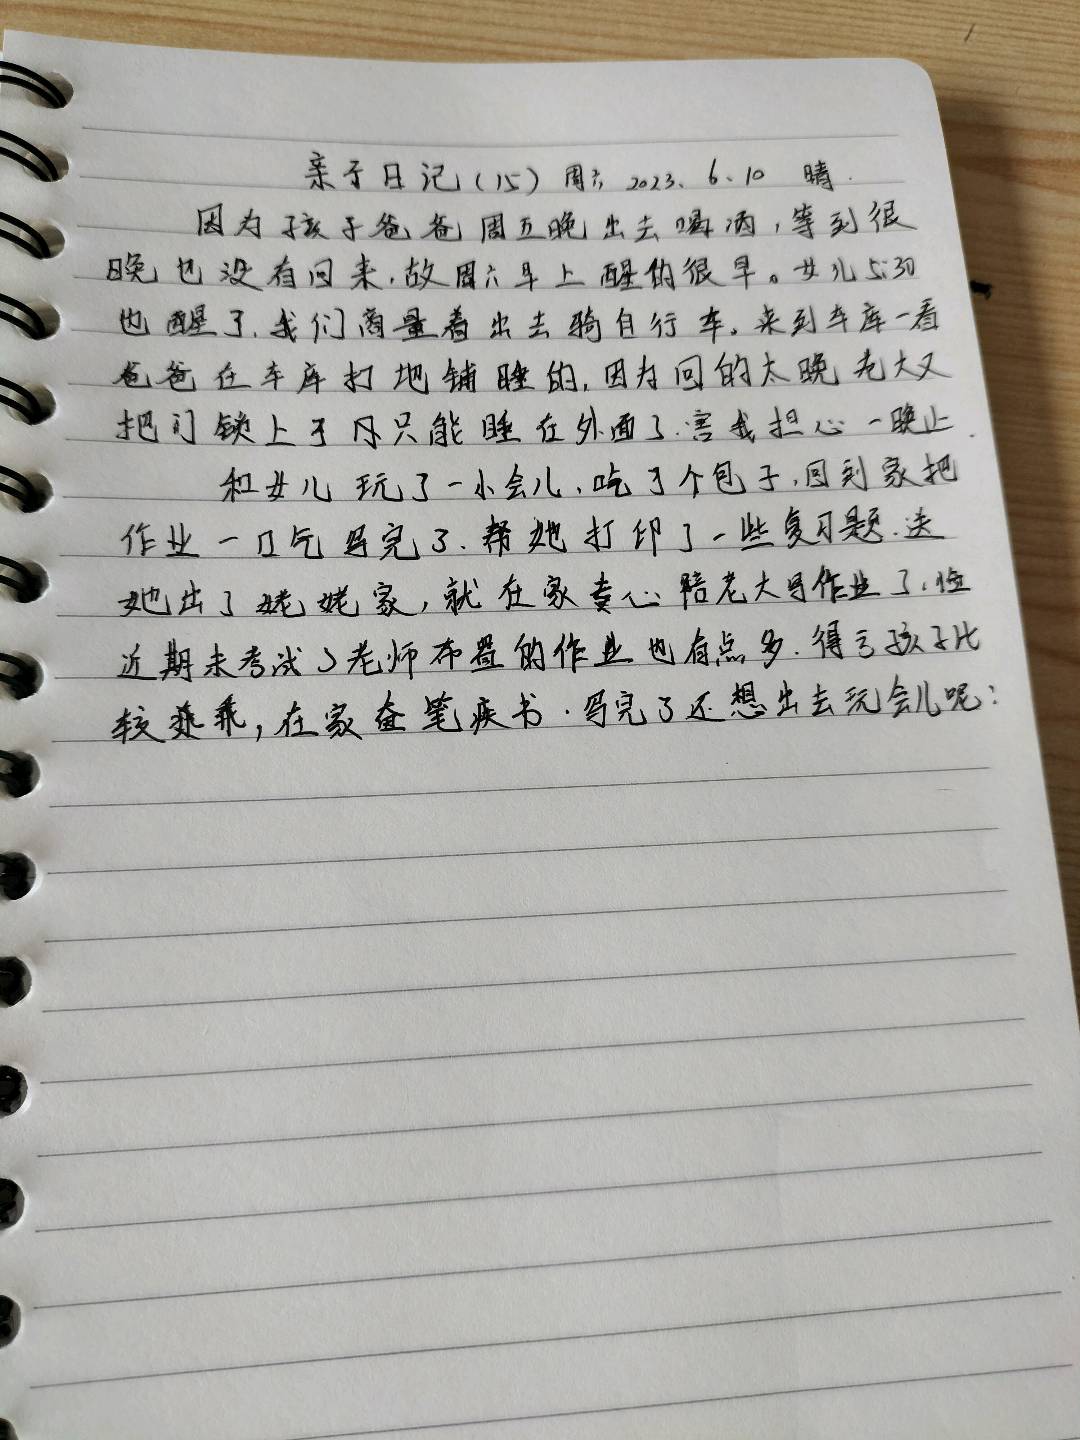 亲子日记(15) 周六 2023.6.10 晴.
因为孩子爸爸周五晚出去喝酒,等到很
晚也没有回来.故周六早上醒的很早。女儿5:30
也醒了.我们商量着出去骑自行车。来到车库一看
爸爸在车库打地铺睡的,因为回的太晚老大又
把门锁上了 只能睡在外面了.害我担心一晚上.
和女儿玩了一小会儿,吃了个包子,回到家把
作业一口气写完了.帮她打印了一些复习题.送
她去了姥姥家,就在家专心陪老大写作业了.临
近期末考试了老师布置的作业也有点多.得亏孩子比
较乖乖,在家奋笔疾书.写完了还想出去玩会儿呢: